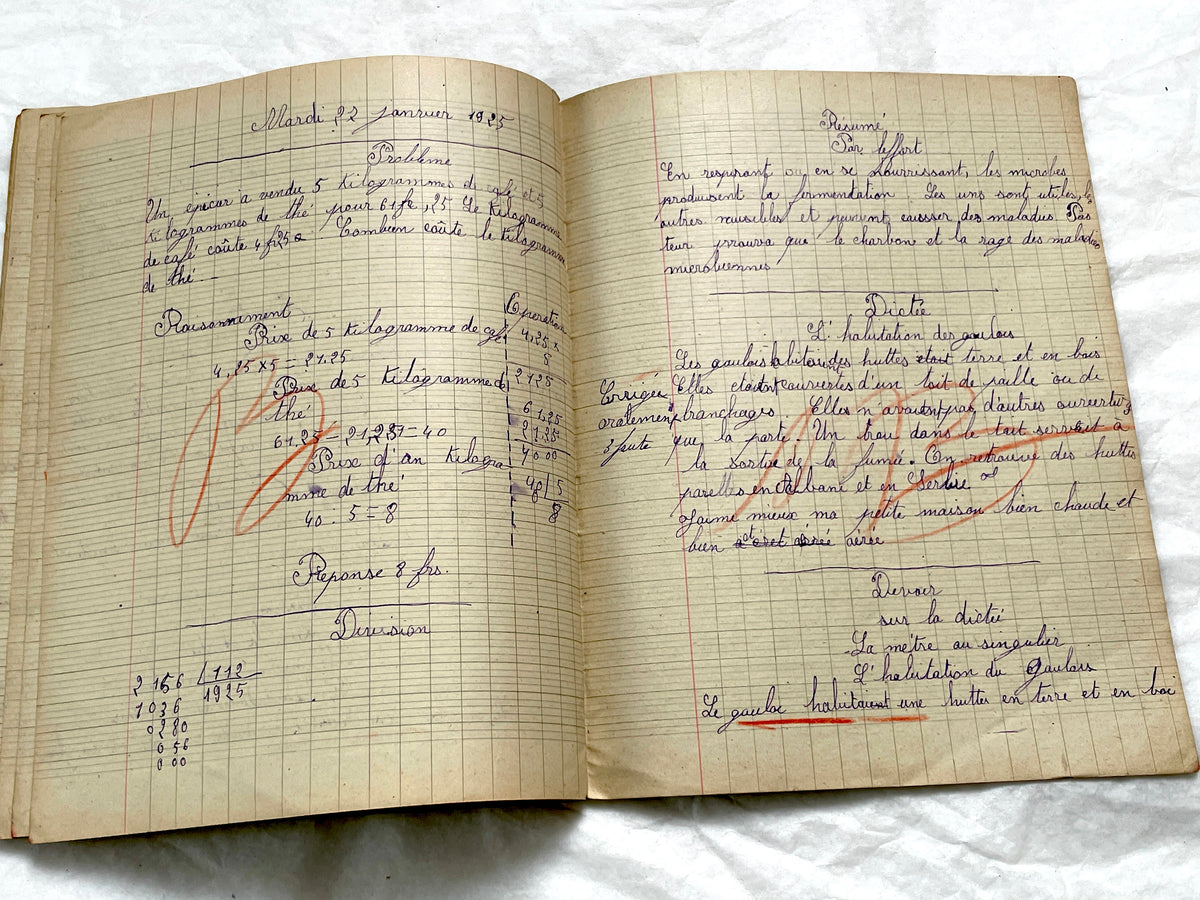 Mardi 22 janvier 1925
Problème
Un épicier a vendu 5 Kilogrammes de café et 5
Kilogrammes de thé pour 61 fr, 25 Le Kilogramme
de café coûte 4 fr 25 Combien coûte le Kilogramme
de thé —
Raisonnement
Prix de 5 Kilogramme de café
4,25 x 5 = 21.25
Prix de 5 Kilogramme de
thé
61.25 - 21,25 = 40
Prix d'un Kilogra-
mme de thé
40 : 5 = 8
Opération
4,25 x
5
2125
61,25
21.25
40 00
40 | 5
0 8
Réponse 8 frs.
Division
2 156 | 112
1036 1925
0280
056
000
Résumé
Par l'effort
En respirant ou en se nourrissant, les microbes
produisent la fermentation. Les uns sont utiles, les
autres nuisibles et peuvent causser des maladies. Pas
teur prouva que le charbon et la rage des maladies
microbiennes
Dictée
L'habitation des gaulois
Les gaulois habitaient des huttes terre et en bois
Elles étaient couvertes d'un toit de paille ou de
branchages. Elles n'avaient pas d'autres ouvertures
que la porte. Un trou dans le toit servait à
la sortie de la fumée. On retrouve des huttes
pareilles en Albanie et en Serbie
J'aime mieux ma petite maison bien chaude et
bien aérée
Corrigée
oralement
3 faute
Devoir
sur la dictée
La mètre au singulier
L'habitation du Gaulois
Le gauloi habitaient une huttes en terre et en boi